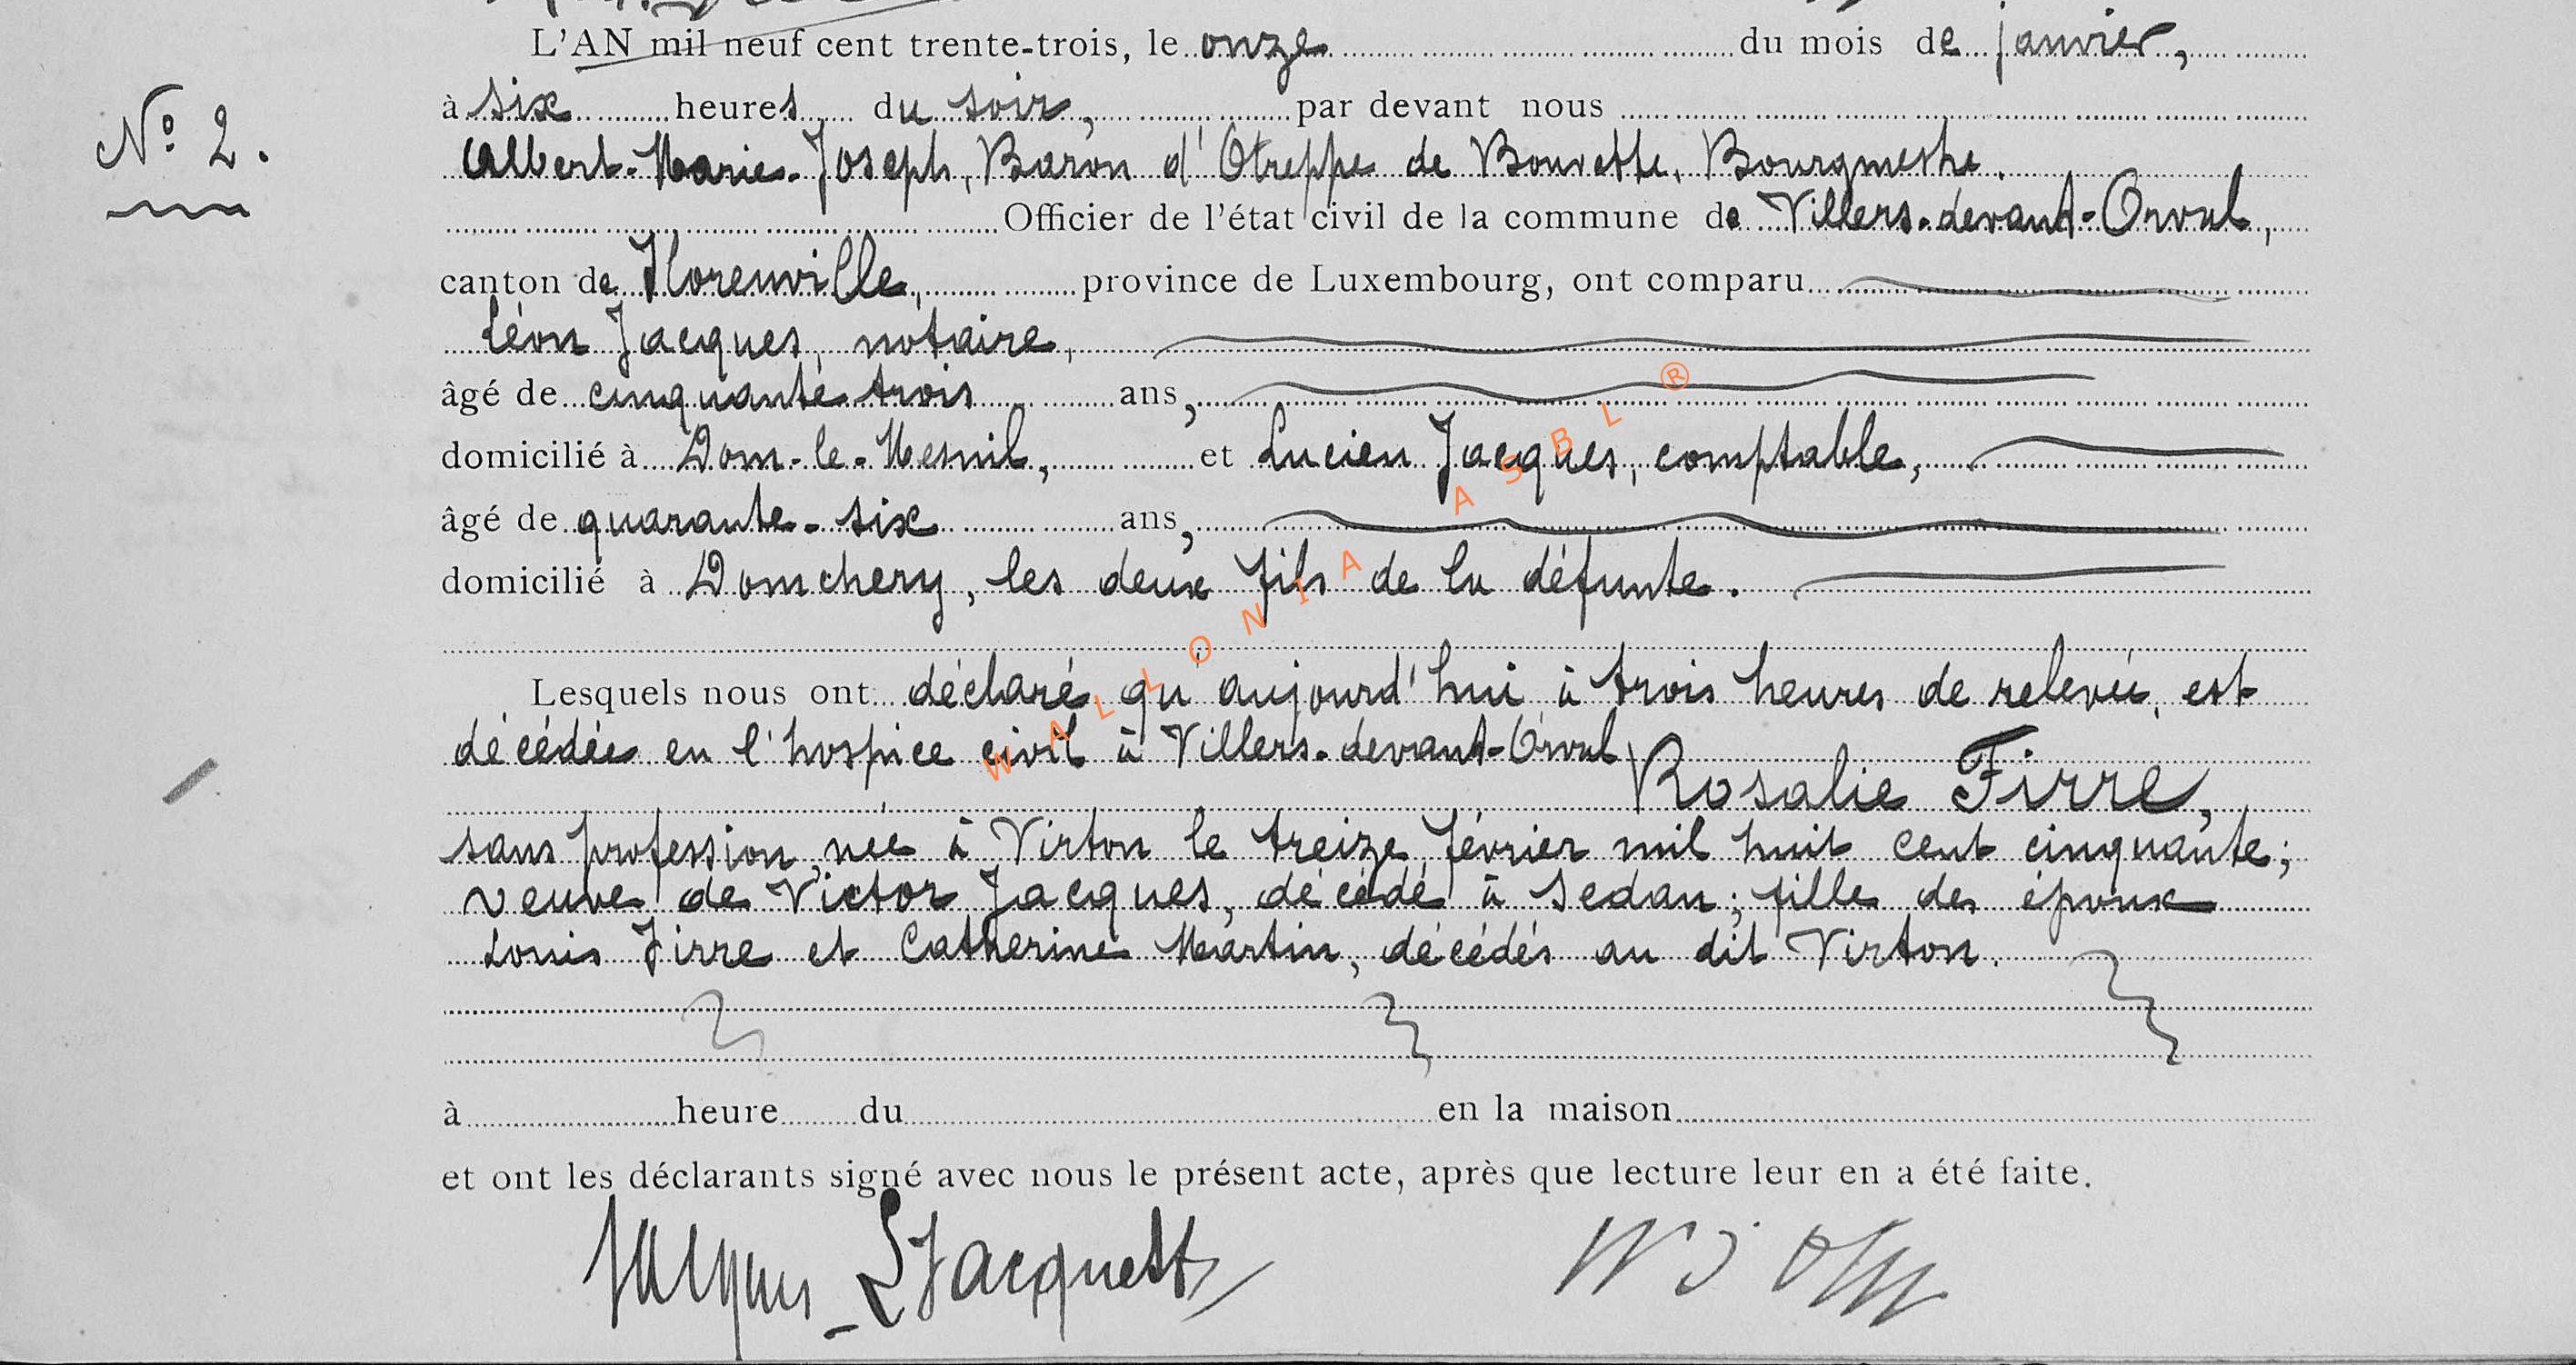 L'AN mil neuf cent trente-trois, le onze du mois de janvier,
N° 2.
à six heures du soir, par devant nous
Albert-Marie-Joseph, Baron d'Otreppe de Bouvette, Bourgmestre.
Officier de l'état civil de la commune de Villers-devant-Orval,
canton de Florenville, province de Luxembourg, ont comparu
Léon Jacques, notaire,
âgé de cinquante trois ans,
domicilié à Dom-le-Mesnil, et Lucien Jacques, comptable,
âgé de quarante-six ans,
domicilié à Domchery, les deux fils de la défunte.
Lesquels nous ont déclaré qu'aujourd'hui à trois heures de relevée, est
décédée en l'hospice civil à Villers-devant-Orval
Rosalie Firre,
sans profession, née à Virton le treize février mil huit cent cinquante;
veuve de Victor Jacques, décédé à Sedan; fille des époux
Louis Firre et Catherine Martin, décédés au dit Virton.
à heure du en la maison
et ont les déclarants signé avec nous le présent acte, après que lecture leur en a été faite.
Jacques
WALLONIA ASBL ®